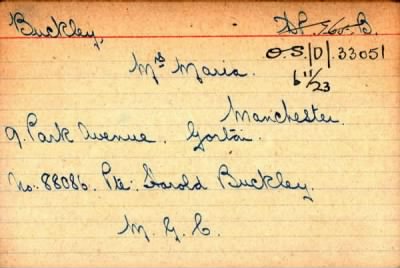 Buckley,
O.S./D/.33051
6/11/23
Mrs Maria.
Manchester.
9. Park Avenue. Gorton.
No: 88086. Pte: Harold Buckley.
M. G. C.